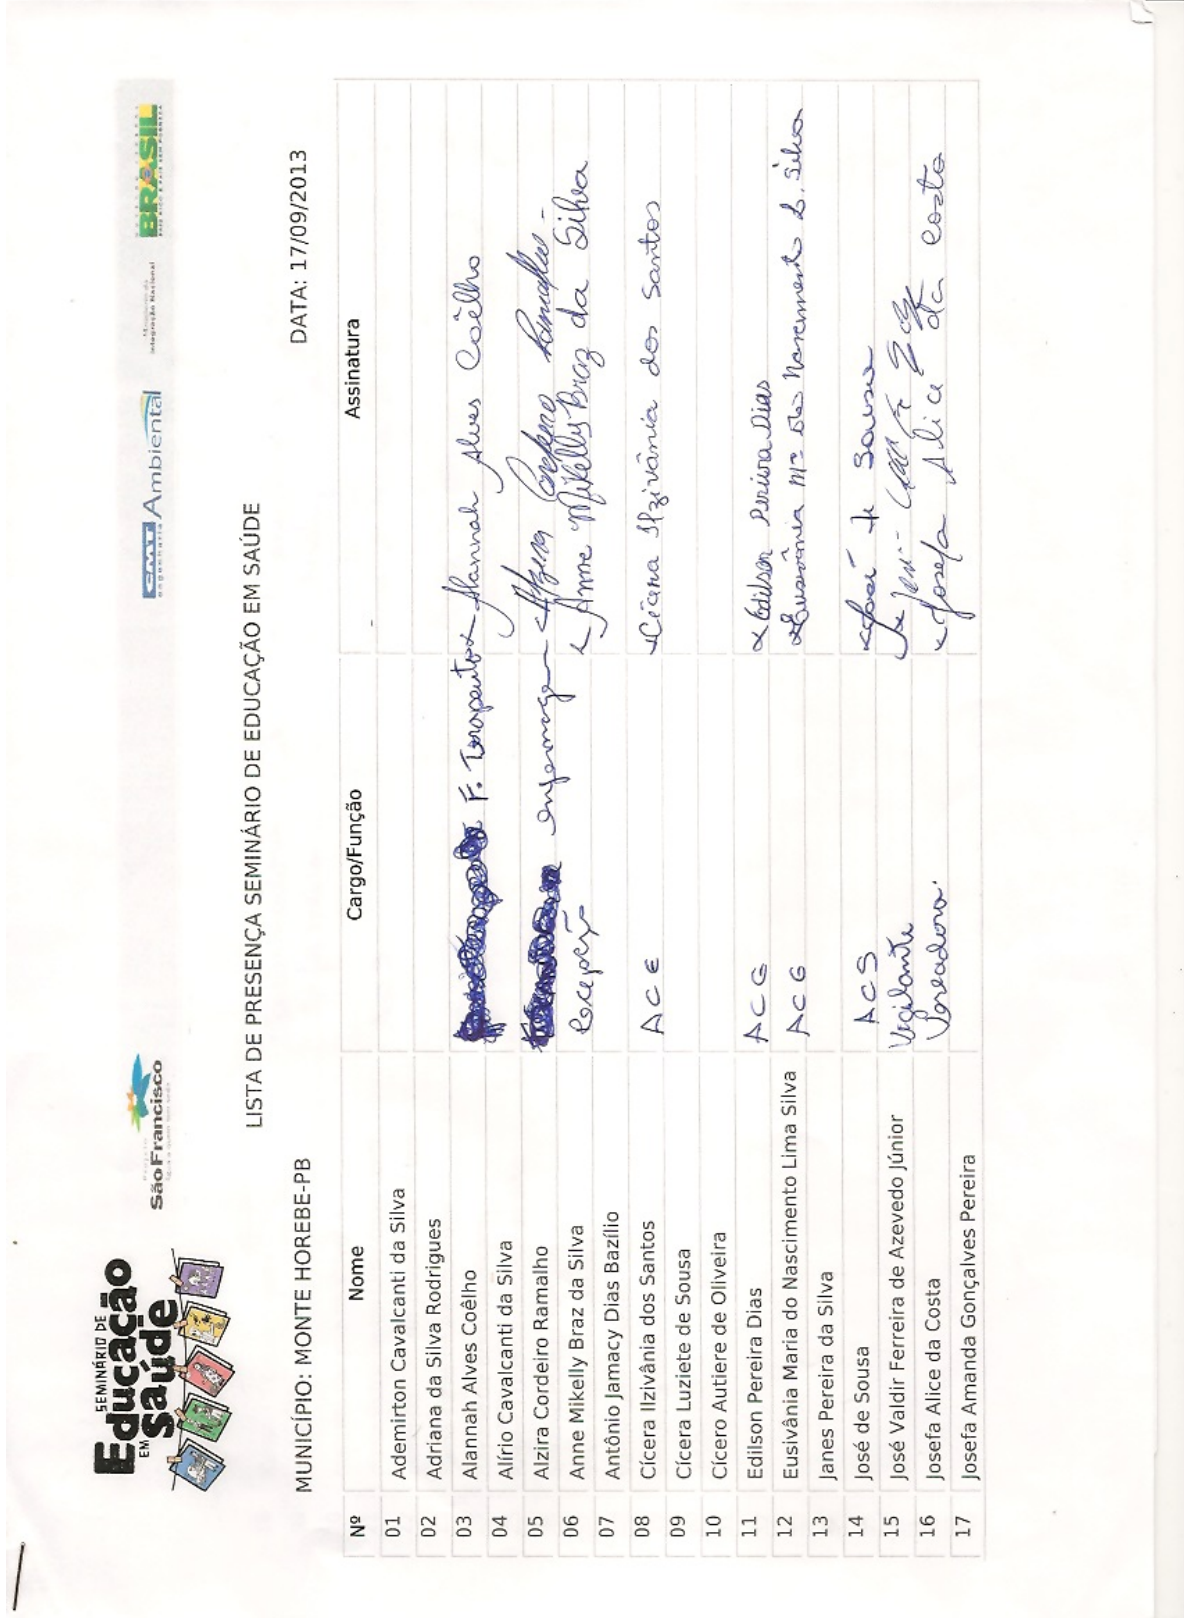 SEMINÁRIO DE
Educação
EM saúde
São Francisco
CMT Ambiental
engenharia
Ministério da
Integração Nacional
BRASIL
LISTA DE PRESENÇA SEMINÁRIO DE EDUCAÇÃO EM SAÚDE
MUNICÍPIO: MONTE HOREBE-PB DATA: 17/09/2013
Nº Nome Cargo/Função Assinatura
01 Ademirton Cavalcanti da Silva
02 Adriana da Silva Rodrigues
03 Alannah Alves Coêlho F. Terapeuta Alannah Alves Coêlho
04 Alírio Cavalcanti da Silva
05 Alzira Cordeiro Ramalho Alzira Cordeiro Ramalho
06 Anne Mikelly Braz da Silva Recepção Anne Mikelly Braz da Silva
07 Antônio Jamacy Dias Bazílio
08 Cícera Ilzivânia dos Santos ACE Cícera Ilzivânia dos Santos
09 Cícera Luziete de Sousa
10 Cícero Autiere de Oliveira
11 Edilson Pereira Dias ACG Edilson Pereira Dias
12 Eusivânia Maria do Nascimento Lima Silva ACG Eusivânia Mª do Nascimento L. Silva
13 Janes Pereira da Silva
14 José de Sousa ACS José de Sousa
15 José Valdir Ferreira de Azevedo Júnior Vigilante
16 Josefa Alice da Costa Vereadora. Josefa Alice da Costa
17 Josefa Amanda Gonçalves Pereira